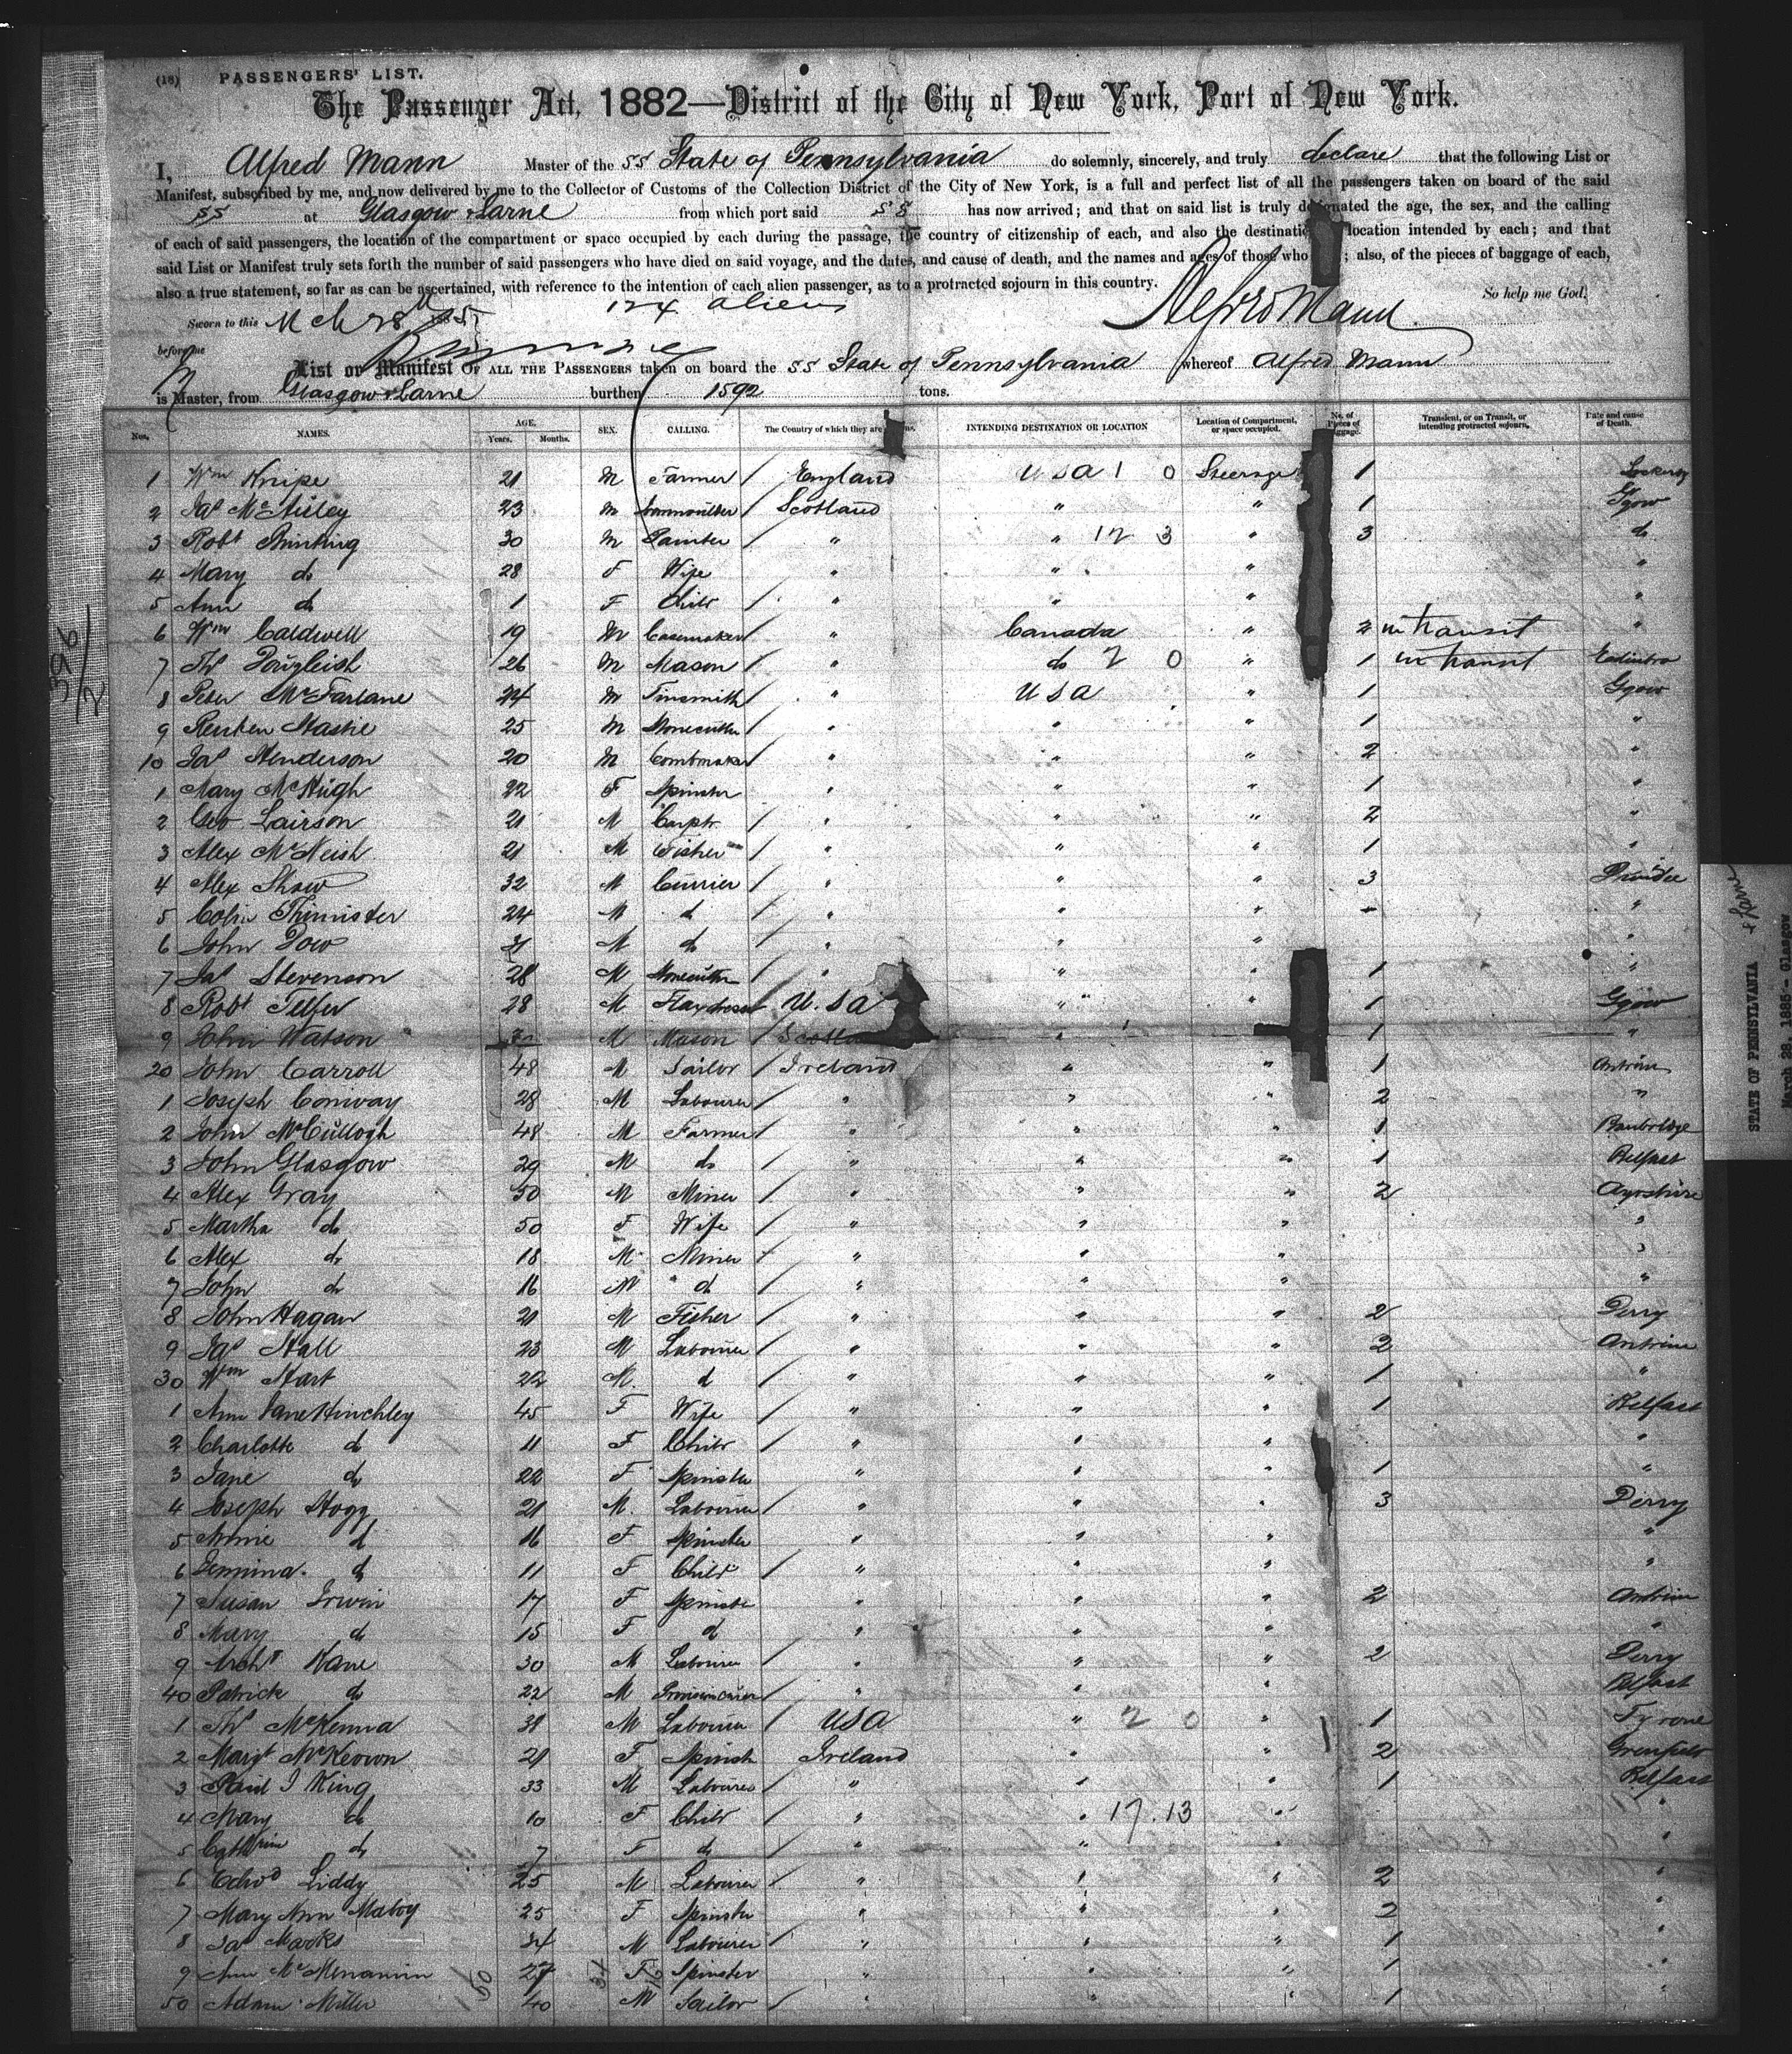 (18) PASSENGERS' LIST.
The Passenger Act, 1882—District of the City of New York, Port of New York.
I, Alfred Mann Master of the SS State of Pennsylvania do solemnly, sincerely, and truly declare that the following List or
Manifest, subscribed by me, and now delivered by me to the Collector of Customs of the Collection District of the City of New York, is a full and perfect list of all the passengers taken on board of the said
SS at Glasgow & Larne from which port said SS has now arrived; and that on said list is truly designated the age, the sex, and the calling
of each of said passengers, the location of the compartment or space occupied by each during the passage, the country of citizenship of each, and also the destination location intended by each; and that
said List or Manifest truly sets forth the number of said passengers who have died on said voyage, and the dates, and cause of death, and the names and ages of those who ; also, of the pieces of baggage of each,
also a true statement, so far as can be ascertained, with reference to the intention of each alien passenger, as to a protracted sojourn in this country. So help me God.
Sworn to this Mch 28th 1885 124 aliens Alfred Mann
before me
List or Manifest OF ALL THE PASSENGERS taken on board the SS State of Pennsylvania whereof Alfred Mann
is Master, from Glasgow & Larne burthen 1592 tons.
Nos. NAMES. AGE. Years. Months. SEX. CALLING. The Country of which they are INTENDING DESTINATION OR LOCATION Location of Compartment, or space occupied. No. of Pieces of Baggage. Transient, or on Transit, or intending protracted sojourn. Date and cause of Death.
1 Wm Knipe 21 M Farmer / England USA 1 0 Steerage 1 Lockerby
2 Jas McAuley 23 M Scotland " " 1 Ggow
3 Robt 30 M Painter / " " 12 3 " 3 do
4 Mary do 28 F Wife " " " "
5 Ann do 1 F Child / " " " "
6 Wm Caldwell 19 M Casemaker / " Canada " 2 in transit "
7 Ths Dougleish 26 M Mason / " do 2 0 " 1 in transit Edinbro
8 Peter McFarlane 24 M Tinsmith / " USA " 1 Ggow
9 Reuben Hastie 25 M Stonecutter " " " 1 "
10 Jas Henderson 20 M Combmaker " " " 2 "
1 Mary McHugh 22 F Spinster " " " 1 "
2 Geo Lairson 21 M Carptr / " " " 2 "
3 Alex McNeish 21 M Fisher / " " " 1 "
4 Alex Shaw 32 M Currier / " " " 3 Dundee
5 Colin Thimister 24 M d / " " " - "
6 John Dow M do / " " " "
7 Jas Stevenson 28 M Stonecutter / " " " 1 "
8 Robt Telfer 28 M Flaxdresser U.S.A " " 1 Ggow
9 John Watson M Mason / " " 1 "
20 John Carroll 48 M Sailor / Ireland " " 1 Antrim
1 Joseph Conway 28 M Labourer / " " " 2 "
2 John McCullogh 48 M Farmer / " " " 1 Banbridge
3 John Glasgow 29 M do / " " " 1 Belfast
4 Alex Gray 50 M Miner / " " " 2 Ayrshire
5 Martha do 50 F Wife / " " " "
6 Alex do 18 M Miner / " " " "
7 John do 16 M d / " " " "
8 John Hagan 21 M Fisher / " " " 2 Derry
9 Jas Hall 23 M Labourer / " " " 2 Antrim
30 Wm Hart 22 M d / " " " 1 "
1 Ann Jane Hinchley 45 F Wife / " " " 1 Belfast
2 Charlotte do 11 F Child / " " " "
3 Jane do 22 F Spinster " " " 1 "
4 Joseph Hogg 21 M Labourer / " " " 3 Derry
5 Annie d 16 F Spinster " " " "
6 Jemima d 11 F Child / " " " "
7 Susan Irwin 17 F Spinster " " " 2 Antrim
8 Mary do 15 F d " " " "
9 Archd Kane 30 M Labourer / " " " 2 Derry
40 Patrick do 22 M / " " " Belfast
1 Ths McKenna 31 M Labourer / USA " 2 0 " 1 Tyrone
2 Margt McKeown 21 F Spinstr Ireland " " 2
3 Paul J King 33 M Labourer / " " " 1 Belfast
4 Mary do 10 F Child / " " 17.13 " "
5 Catherine do 7 F do / " " " "
6 Edwd Liddy 25 M Labourer / " " " 2 "
7 Mary Ann Maloy 25 F Spinster " " " 2 "
8 Jas Marks 24 M Labourer / " " " 1 "
9 Ann McMenamin 27 F Spinster " " " 1 "
50 Adam Miller 40 M Sailor / " " " 1 "
396/2
STATE OF PENNSYLVANIA & Larne
March 28, 1885 - Glasgow